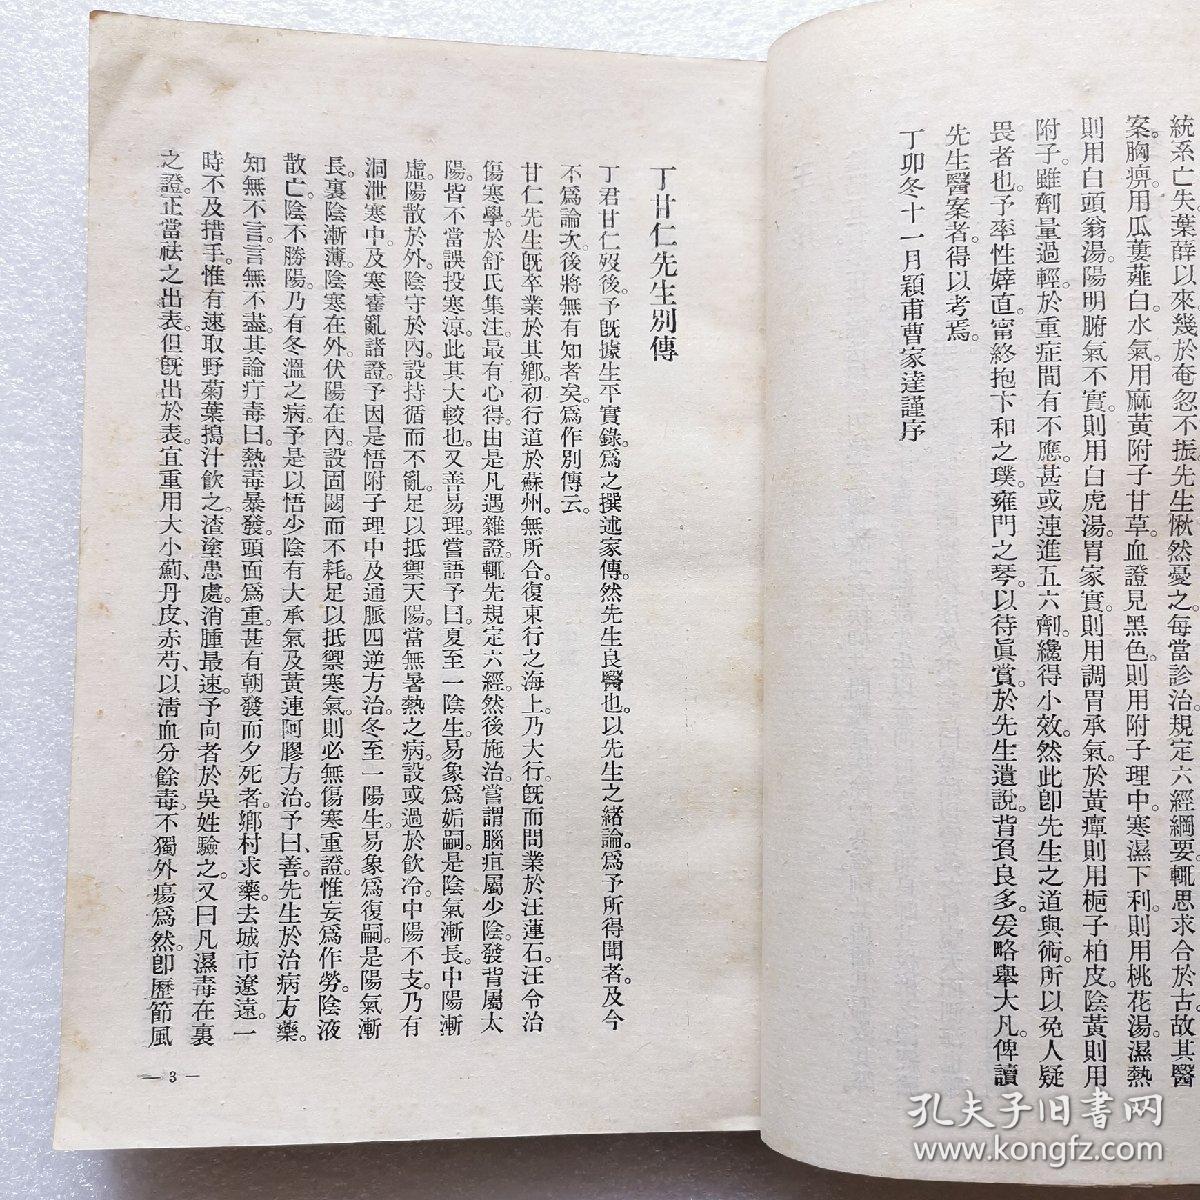 統系亡失。葉薛以來。幾於奄忽不振。先生愀然憂之。每當診治。規定六經綱要。輒思求合於古。故其醫
案。胸痹。用瓜蔞薤白。水氣。用麻黃附子甘草。血證見黑色。則用附子理中。寒濕下利。則用桃花湯。濕熱
則用白頭翁湯。陽明腑氣不實。則用白虎湯。胃家實。則用調胃承氣。於黃癉則用梔子柏皮。陰黃則用
附子。雖劑量過輕。於重症間有不應。甚或連進五六劑。纔得小效。然此卽先生之道與術。所以免人疑
畏者也。予率性婞直。甯終抱卞和之璞。雍門之琴。以待眞賞。於先生遺說。背負良多。爰略舉大凡。俾讀
先生醫案者。得以考焉。
丁卯冬十一月穎甫曹家達謹序
丁甘仁先生別傳
丁君甘仁歿後。予旣據生平實錄。爲之撰述家傳。然先生良醫也。以先生之緒論。爲予所得聞者。及今
不爲論次。後將無有知者矣。爲作別傳云。
甘仁先生旣卒業於其鄉。初行道於蘇州。無所合。復東行之海上。乃大行。旣而問業於汪蓮石。汪令治
傷寒學。於舒氏集注。最有心得。由是凡遇雜證。輒先規定六經。然後施治。嘗謂腦疽屬少陰。發背屬太
陽。皆不當誤投寒涼。此其大較也。又善易理。嘗語予曰。夏至一陰生。易象爲姤。嗣是陰氣漸長。中陽漸
虛。陽散於外。陰守於內。設持循而不亂。足以抵禦天陽。當無暑熱之病。設或過於飲冷。中陽不支。乃有
洞泄寒中。及寒霍亂諸證。予因是悟附子理中。及通脈四逆方治。冬至一陽生。易象爲復。嗣是陽氣漸
長。裏陰漸薄。陰寒在外。伏陽在內。設固閟而不耗。足以抵禦寒氣。則必無傷寒重證。惟妄爲作勞。陰液
散亡。陰不勝陽。乃有冬溫之病。予是以悟少陰有大承氣及黃連阿膠方治。予曰、善。先生於治病方藥。
知無不言。言無不盡。其論疔毒曰。熱毒暴發。頭面爲重。甚有朝發而夕死者。鄉村求藥。去城市遼遠。一
時不及措手。惟有速取野菊葉搗汁飲之。渣塗患處。消腫最速。予向者於吳姓驗之。又曰凡濕毒在裏
之證。正當祛之出表。但旣出於表。宜重用大小薊、丹皮、赤芍、以淸血分餘毒。不獨外瘍爲然。卽歷節風
— 3 —
孔夫子旧书网
www.kongfz.com